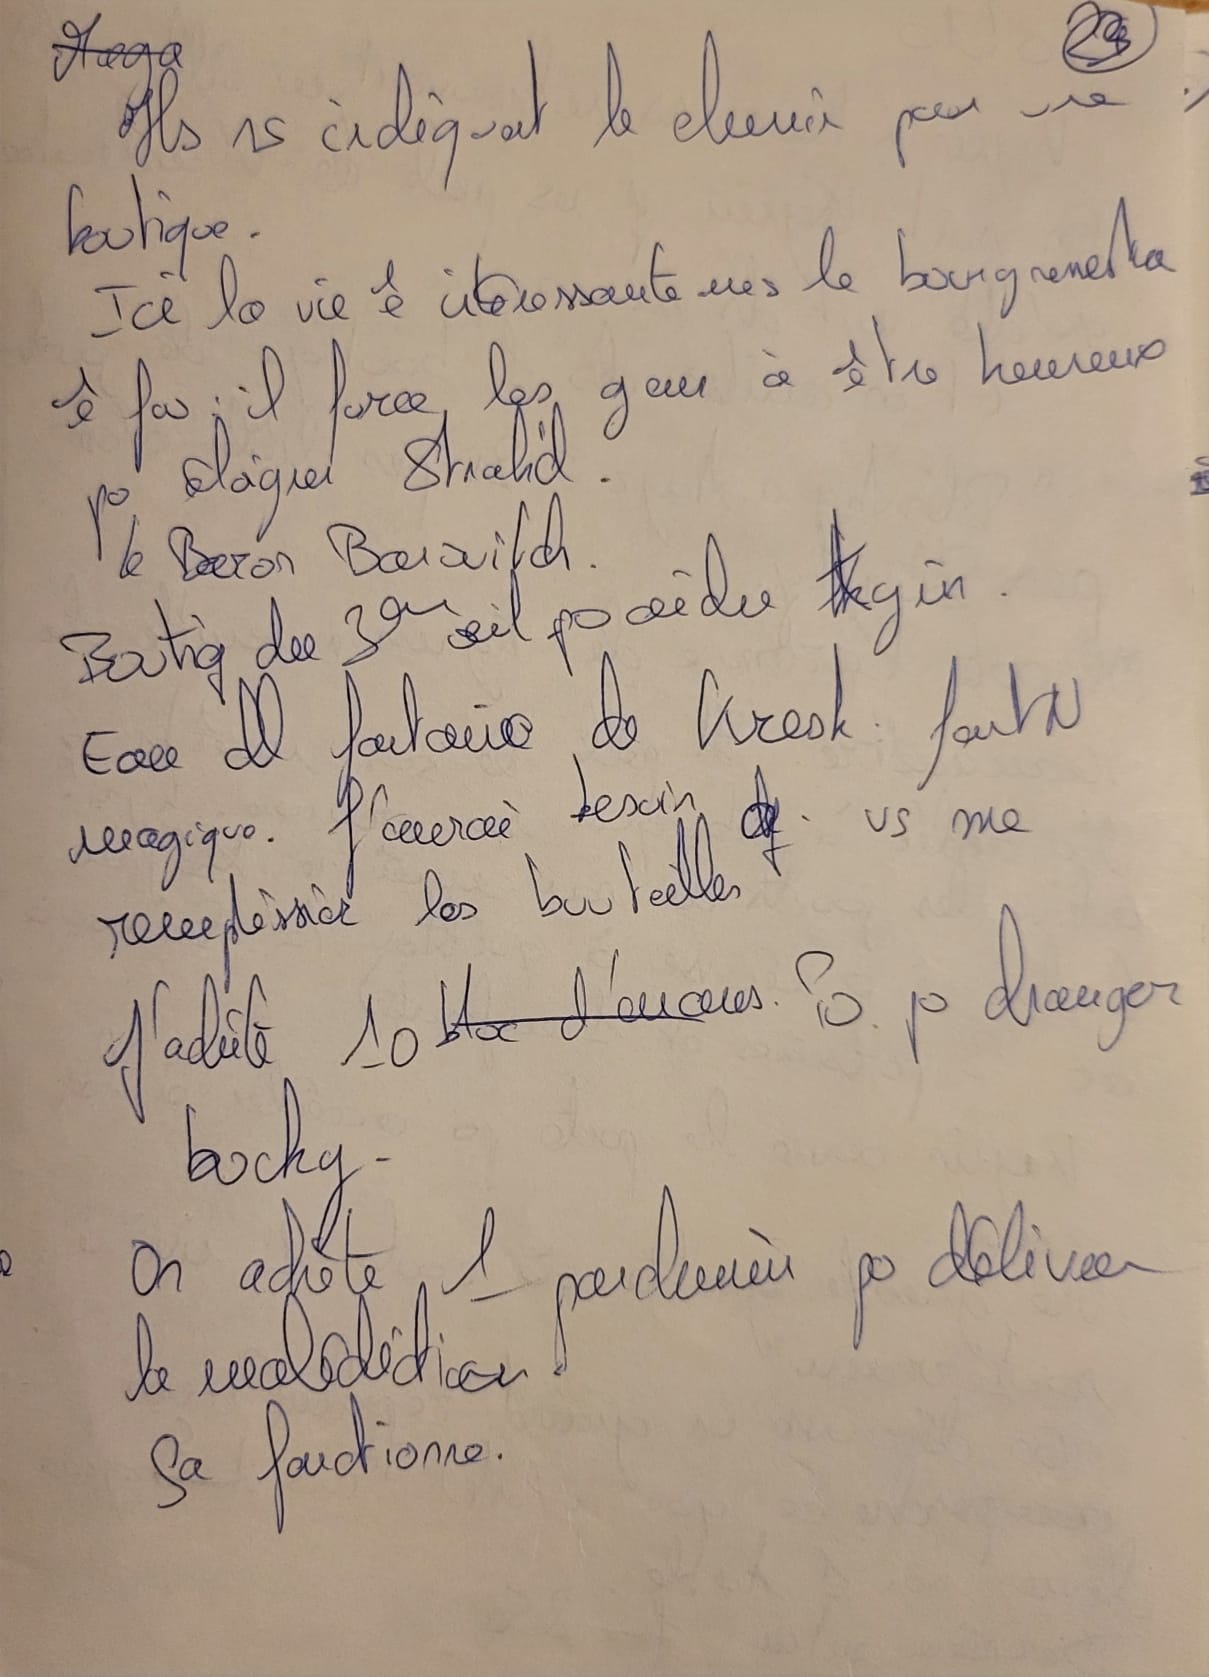 29
Ils ns indiquent le chemin pour une
boutique.
Ici la vie ê intéressante mes le bourgmestre
ê fou, il force les gens à être heureux
po éloigner Strahd.
le Baron
Boutiq du 3em oeil po aider
Eau dll fontaine de Kresk. font N
magique. J'aurai besoin q. vs me
remplissier les bouteilles
J'achète 10 d'encens. Po. po changer
bocky.
On achète 1 parchemin po délivrer
la malédiction.
Sa fonctionne.